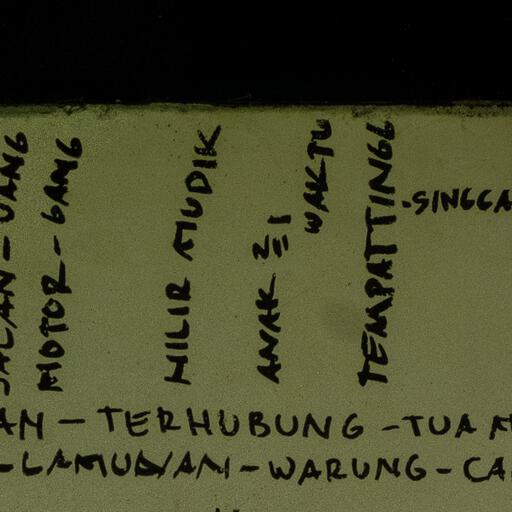 MOTOR - GANG
HILIR MUDIK
ANAK
WAKTU
TEMPATTINGG
- SINGGA
AN - TERHUBUNG - TUA
- LAMUNAN - WARUNG - CA